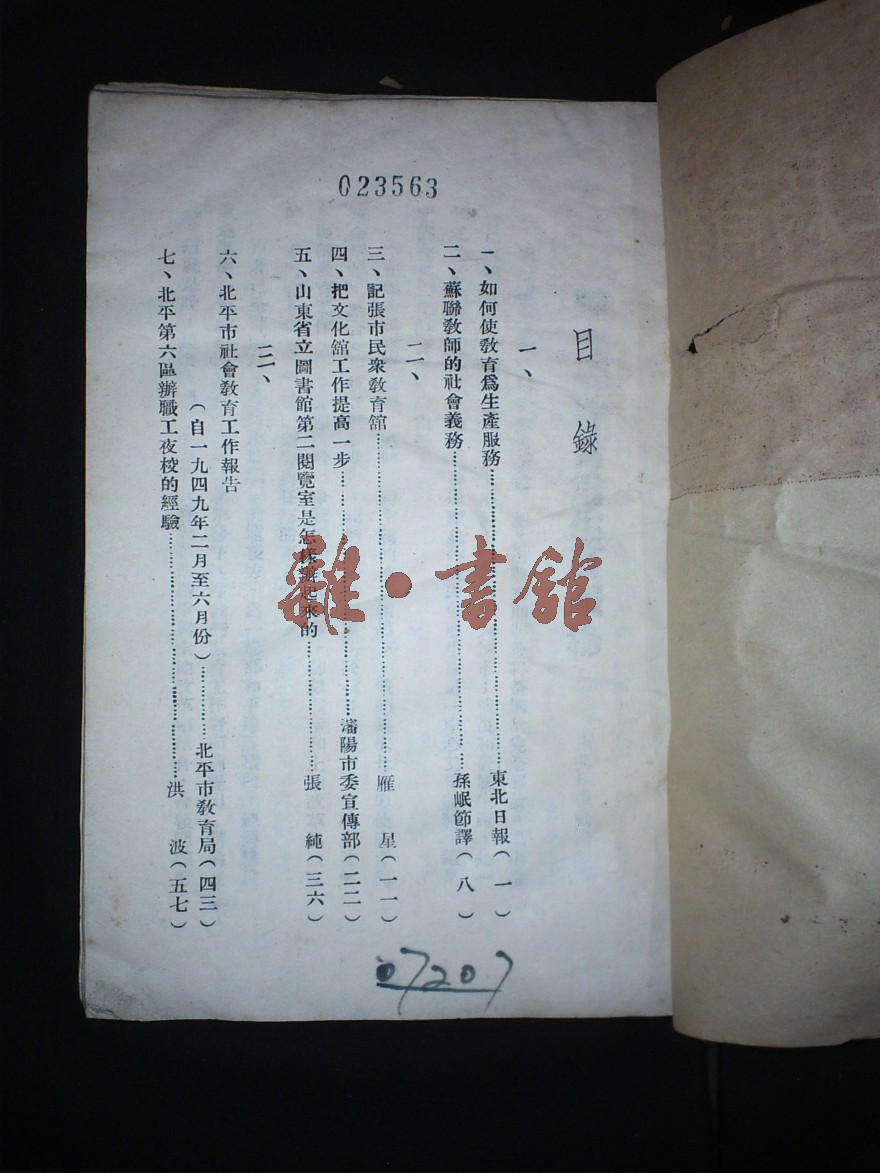 023563
目錄
一、
一、如何使教育爲生產服務……東北日報(一)
二、蘇聯教師的社會義務……孫岷節譯(八)
二、
三、記張市民衆教育舘……雁星(一一)
四、把文化舘工作提高一步……瀋陽市委宣傳部(二二)
五、山東省立圖書館第二閱覽室是怎樣辦起來的……張純(三六)
三、
六、北平市社會敎育工作報告
(自一九四九年二月至六月份)……北平市敎育局(四三)
七、北平第六區辦職工夜校的經驗……洪波(五七)
雜·書館
07207